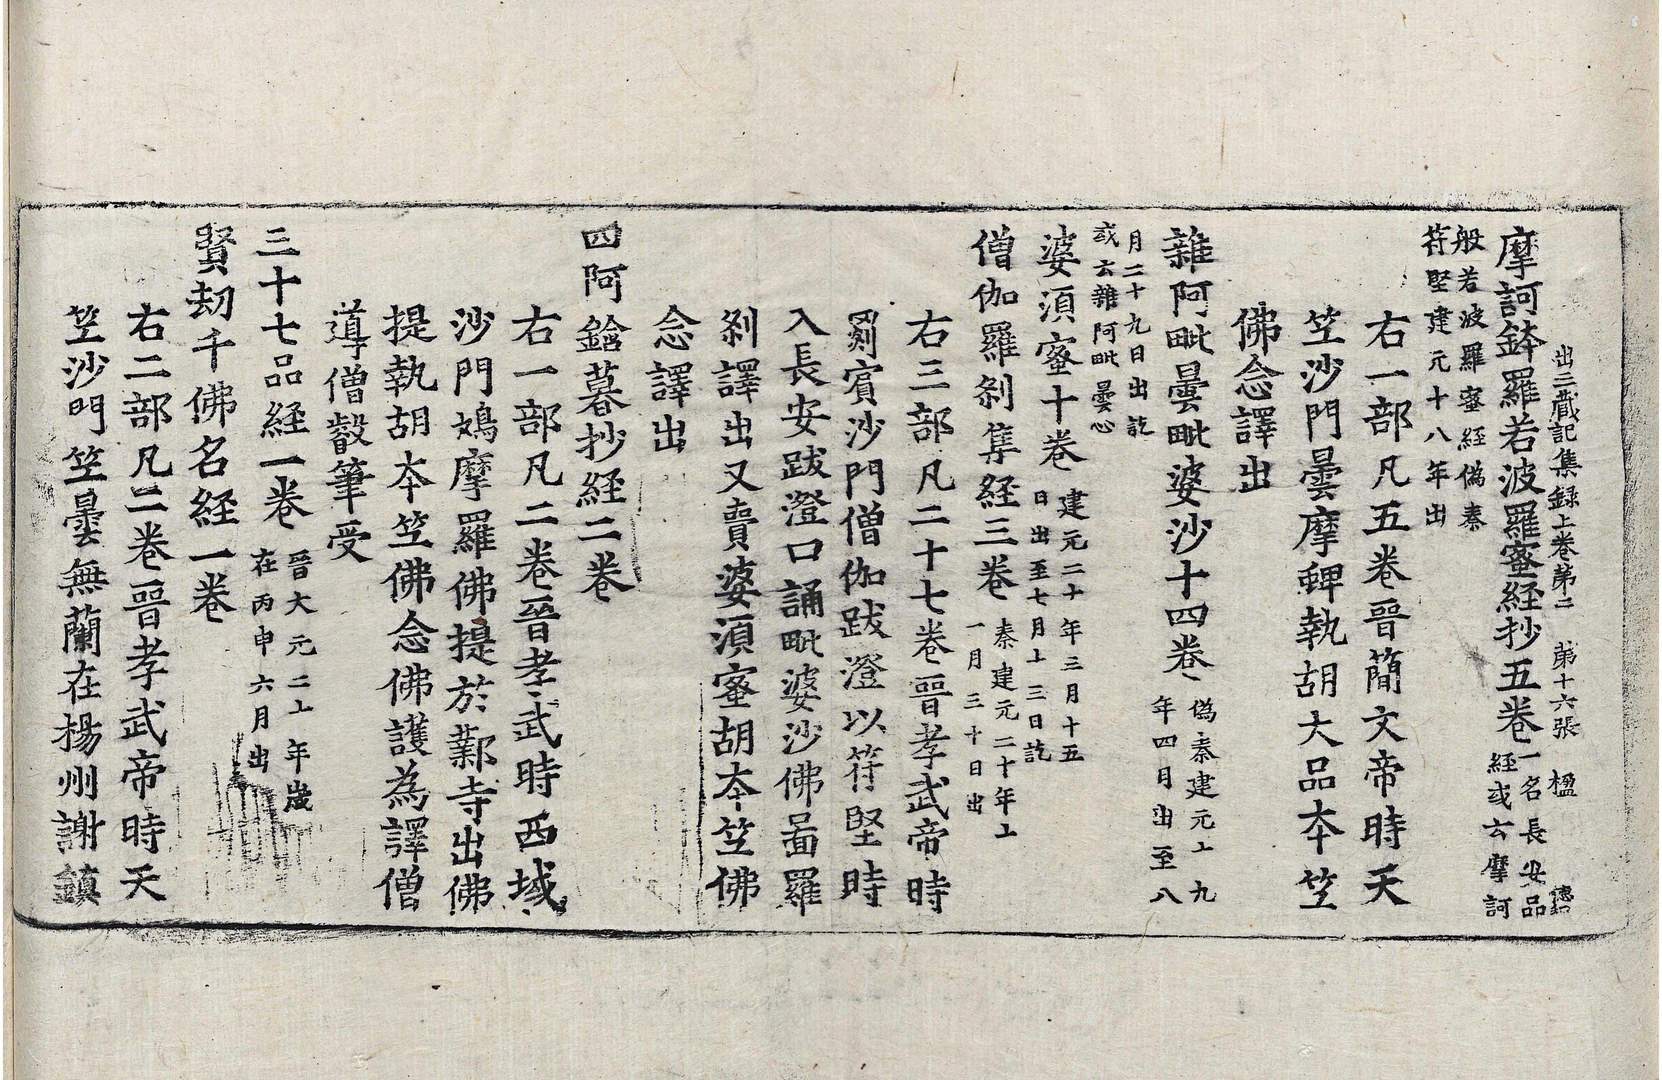 出三蔵記集録上卷第二 第十六張 楹
摩訶鉢羅若波羅蜜経抄五卷 一名長安品
経或云摩訶
般若波羅蜜経偽秦
苻堅建元十八年出
右一部凡五卷晉簡文帝時天
竺沙門曇摩蜱執胡大品夲竺
佛念譯出
雜阿毗曇毗婆沙十四卷 偽秦建元十九
年四月出至八
月二十九日出訖
或云雜阿毗曇心
婆湏蜜十卷 建元二十年三月十五
日出至七月十三日訖
僧伽羅剎集経三卷 秦建元二十年十
一月三十日出
右三部凡二十七卷晉孝武帝時
罽賓沙門僧伽跋澄以苻堅時
入長安跋澄口誦毗婆沙佛啚羅
剎譯出又賷婆湏蜜胡夲竺佛
念譯出
四阿鋡暮抄経二卷
右一部凡二卷晉孝武時西域
沙門鳩摩羅佛提於鄴寺出佛
提執胡夲竺佛念佛護為譯僧
導僧叡筆受
三十七品経一卷 晉大元二十年歲
在丙申六月出
賢劫千佛名経一卷
右二部凡二卷晉孝武帝時天
竺沙門竺曇無蘭在楊州謝鎮